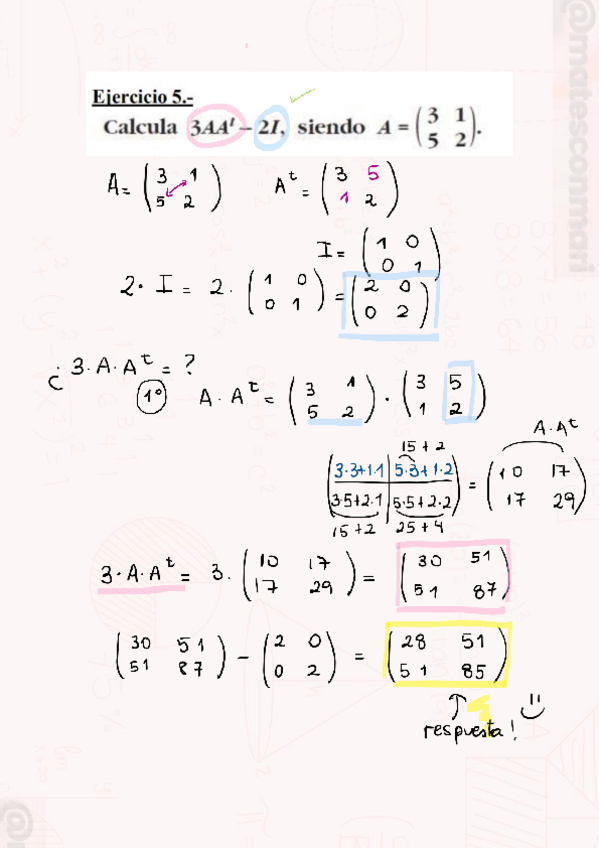 @matesconmari
Ejercicio 5.-
Calcula 3AAᵗ – 2I, siendo A = (3 1
5 2).
A = (3 1
5 2)
Aᵗ = (3 5
1 2)
I = (1 0
0 1)
2 · I = 2 · (1 0
0 1) = (2 0
0 2)
¿ 3 · A · Aᵗ = ?
1º
A · Aᵗ = (3 1
5 2) · (3 5
1 2)
15 + 2
A · Aᵗ
(3·3+1·1 5·3+1·2
3·5+2·1 5·5+2·2) = (10 17
17 29)
15 + 2 25 + 4
3 · A · Aᵗ = 3 · (10 17
17 29) = (30 51
51 87)
(30 51
51 87) – (2 0
0 2) = (28 51
51 85)
respuesta!